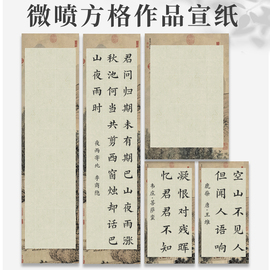 微喷方格作品宣纸
君问归期未有期巴山夜雨涨
秋池何当共剪西窗烛却话巴
山夜雨时
夜雨寄北 李商隐
凝恨对残晖
忆君君不知
韦庄 菩萨蛮
空山不见人
但闻人语响
鹿柴 唐 王维